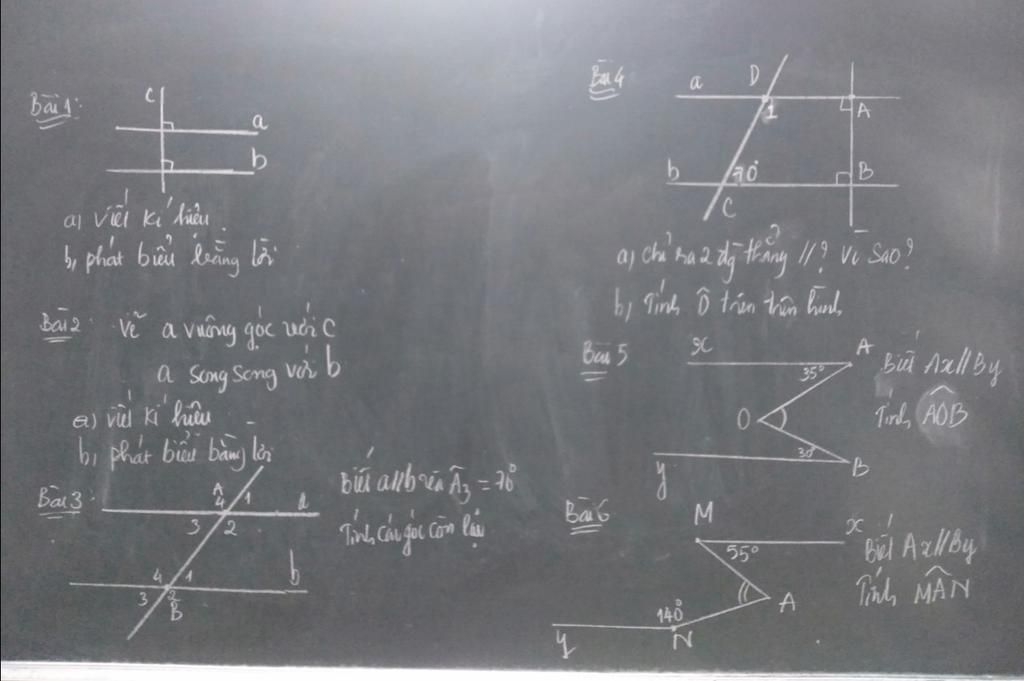 Bài 1:
c
a
b
a) Viết kí hiệu
b, phát biểu bằng lời
Bài 2 Vẽ a vuông góc với c
a song song với b
a) Viết kí hiệu
b, phát biểu bằng lời
Bài 3
A
4 1
3 2
a
4 1
3 2
B
b
Biết a//b và Â3 = 70°
Tính các góc còn lại
Bài 4
a D
1 A
b 70° B
C
a) chỉ ra 2 đg thẳng //? Vì Sao?
b) Tính D̂ trên trên hình
Bài 5
x A
35°
O
30°
y B
Biết Ax//By
Tính AOB
Bài 6
M
x
55°
A
140°
y N
Biết Ax//By
Tính MAN